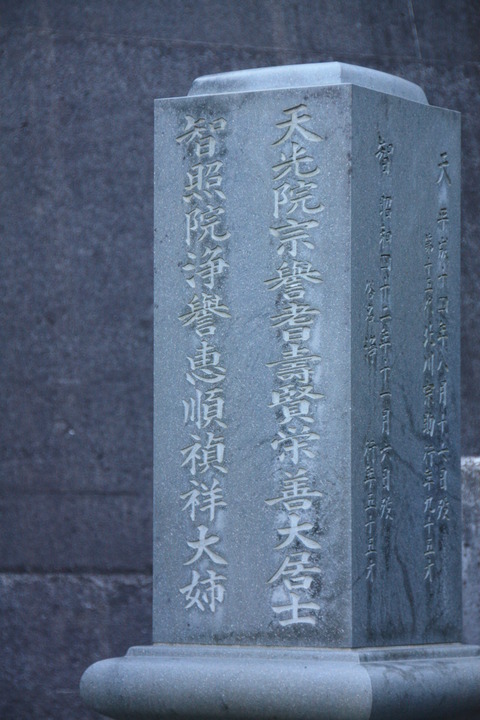 天光院宗譽耆壽賢栄善大居士
智照院浄譽恵順禎祥大姉
天 平成十四年八月十六日歿
川宗助 行年九十五才
智 昭和四十一年十一月六日歿
俗名 行年五十五才